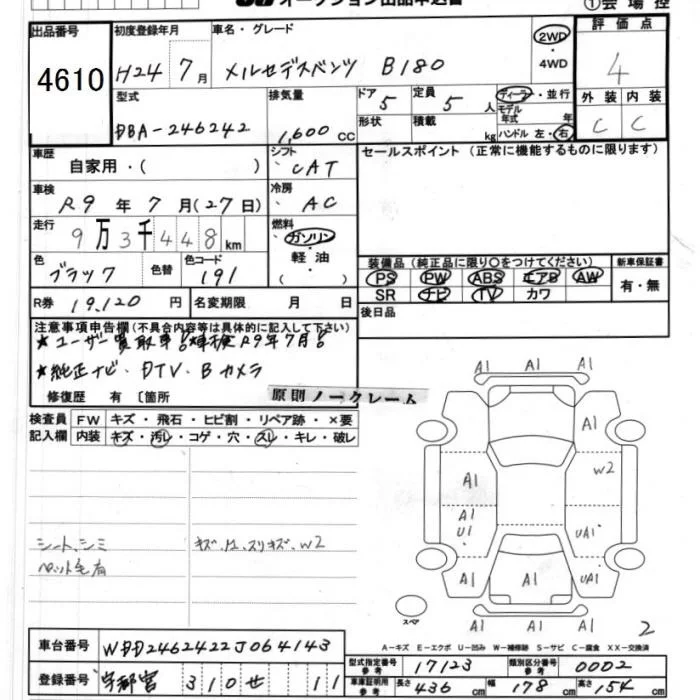 オークション出品申込書 ①会場控
出品番号 初度登録年月 車名・グレード 2WD・4WD 評価点
4610 H24年7月 メルセデスベンツ B180 4
型式 排気量 ドア 5 定員 5人 ディーラー・並行 外装 内装
DBA-246242 1,600cc 形状 積載 kg モデル年式 年 ハンドル 左・右 C C
車歴 自家用・( ) シフト CAT セールスポイント (正常に機能するものに限ります)
車検 R9年7月(27日) 冷房 AC
走行 9万3千448km 燃料 ガソリン・軽油( )
色 ブラック 色替 色コード 191 装備品 (純正品に限り○をつけてください) 新車保証書
PS PW ABS エアB AW 有・無
SR ナビ TV カワ
R券 19,120円 名変期限 月 日 後日品
注意事項申告欄(不具合内容等は具体的に記入して下さい)
★ユーザー買取車! ★車検R9年7月!
★純正ナビ・DTV・Bカメラ
修復歴 有 〔箇所 原則ノークレーム
検査員 FW キズ・飛石・ヒビ割・リペア跡・×要
記入欄 内装 キズ・汚レ・コゲ・穴・スレ・キレ・破レ
A1
A1 A1 A1
A1 W2
A1 A1
U1 UA1
シート、シミ キズ、スリキズ、W2
ペット毛有
A1 A1 UA1
スペア A1 A1 A1
2
車台番号 WDD2462422J064143 A-キズ E-エクボ U-凹み W-補修跡 S-サビ C-腐食 XX-交換済
型式指定番号 参考 17123 類別区分番号 参考 0002
登録番号 宇都宮 310 せ 11 車庫証明用 参考 長さ 436cm 幅 178cm 高さ 154cm